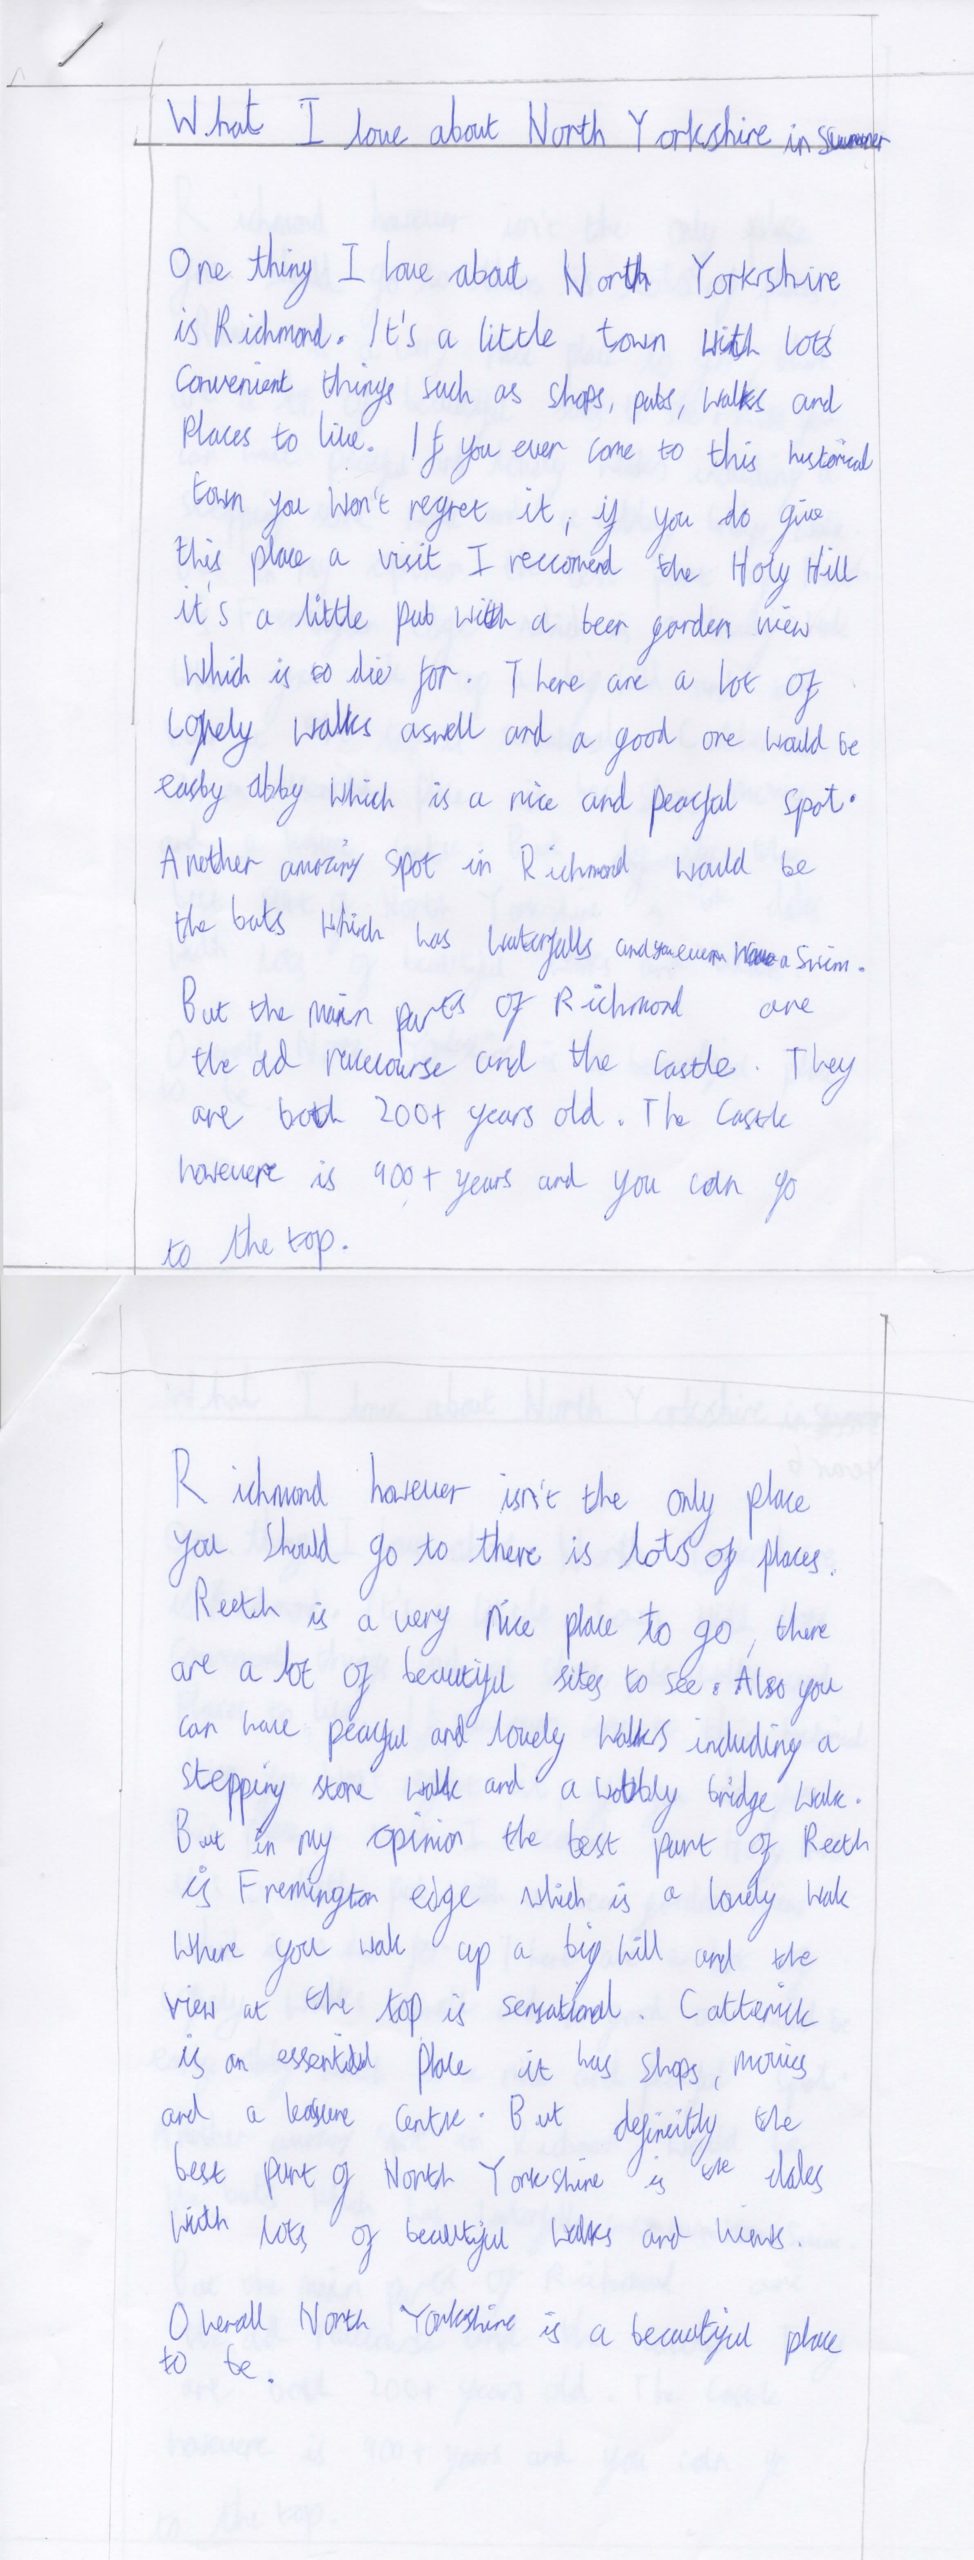 What I love about North Yorkshire in Summer
One thing I love about North Yorkshire
is Richmond. It's a little town with lots
Convenient things such as shops, pubs, walks and
Places to live. If you ever come to this historical
town you won't regret it, if you do give
this place a visit I reccomend the Holy Hill
it's a little pub with a beer garden view
which is to die for. There are a lot of
lovely walks aswell and a good one would be
easby abby which is a nice and peacful spot.
Another amazing spot in Richmond would be
the bats which has waterfalls and you even have a swim.
But the main parts of Richmond are
the old racecourse and the castle. They
are both 200+ years old. The Castle
howevere is 900+ years and you can go
to the top.
Richmond however isn't the only place
you should go to there is lots of places.
Reeth is a very nice place to go, there
are a lot of beautiful sites to see. Also you
can have peacful and lovely walks including a
stepping stone walk and a wobbly bridge walk.
But in my opinion the best part of Reeth
is Fremington edge which is a lovely walk
where you walk up a big hill and the
view at the top is sensational. Catterick
is an essential place it has shops, movies
and a leasure centre. But definitly the
best part of North Yorkshire is the dales
with lots of beautiful walks and views.
Overall North Yorkshire is a beautiful place
to be.